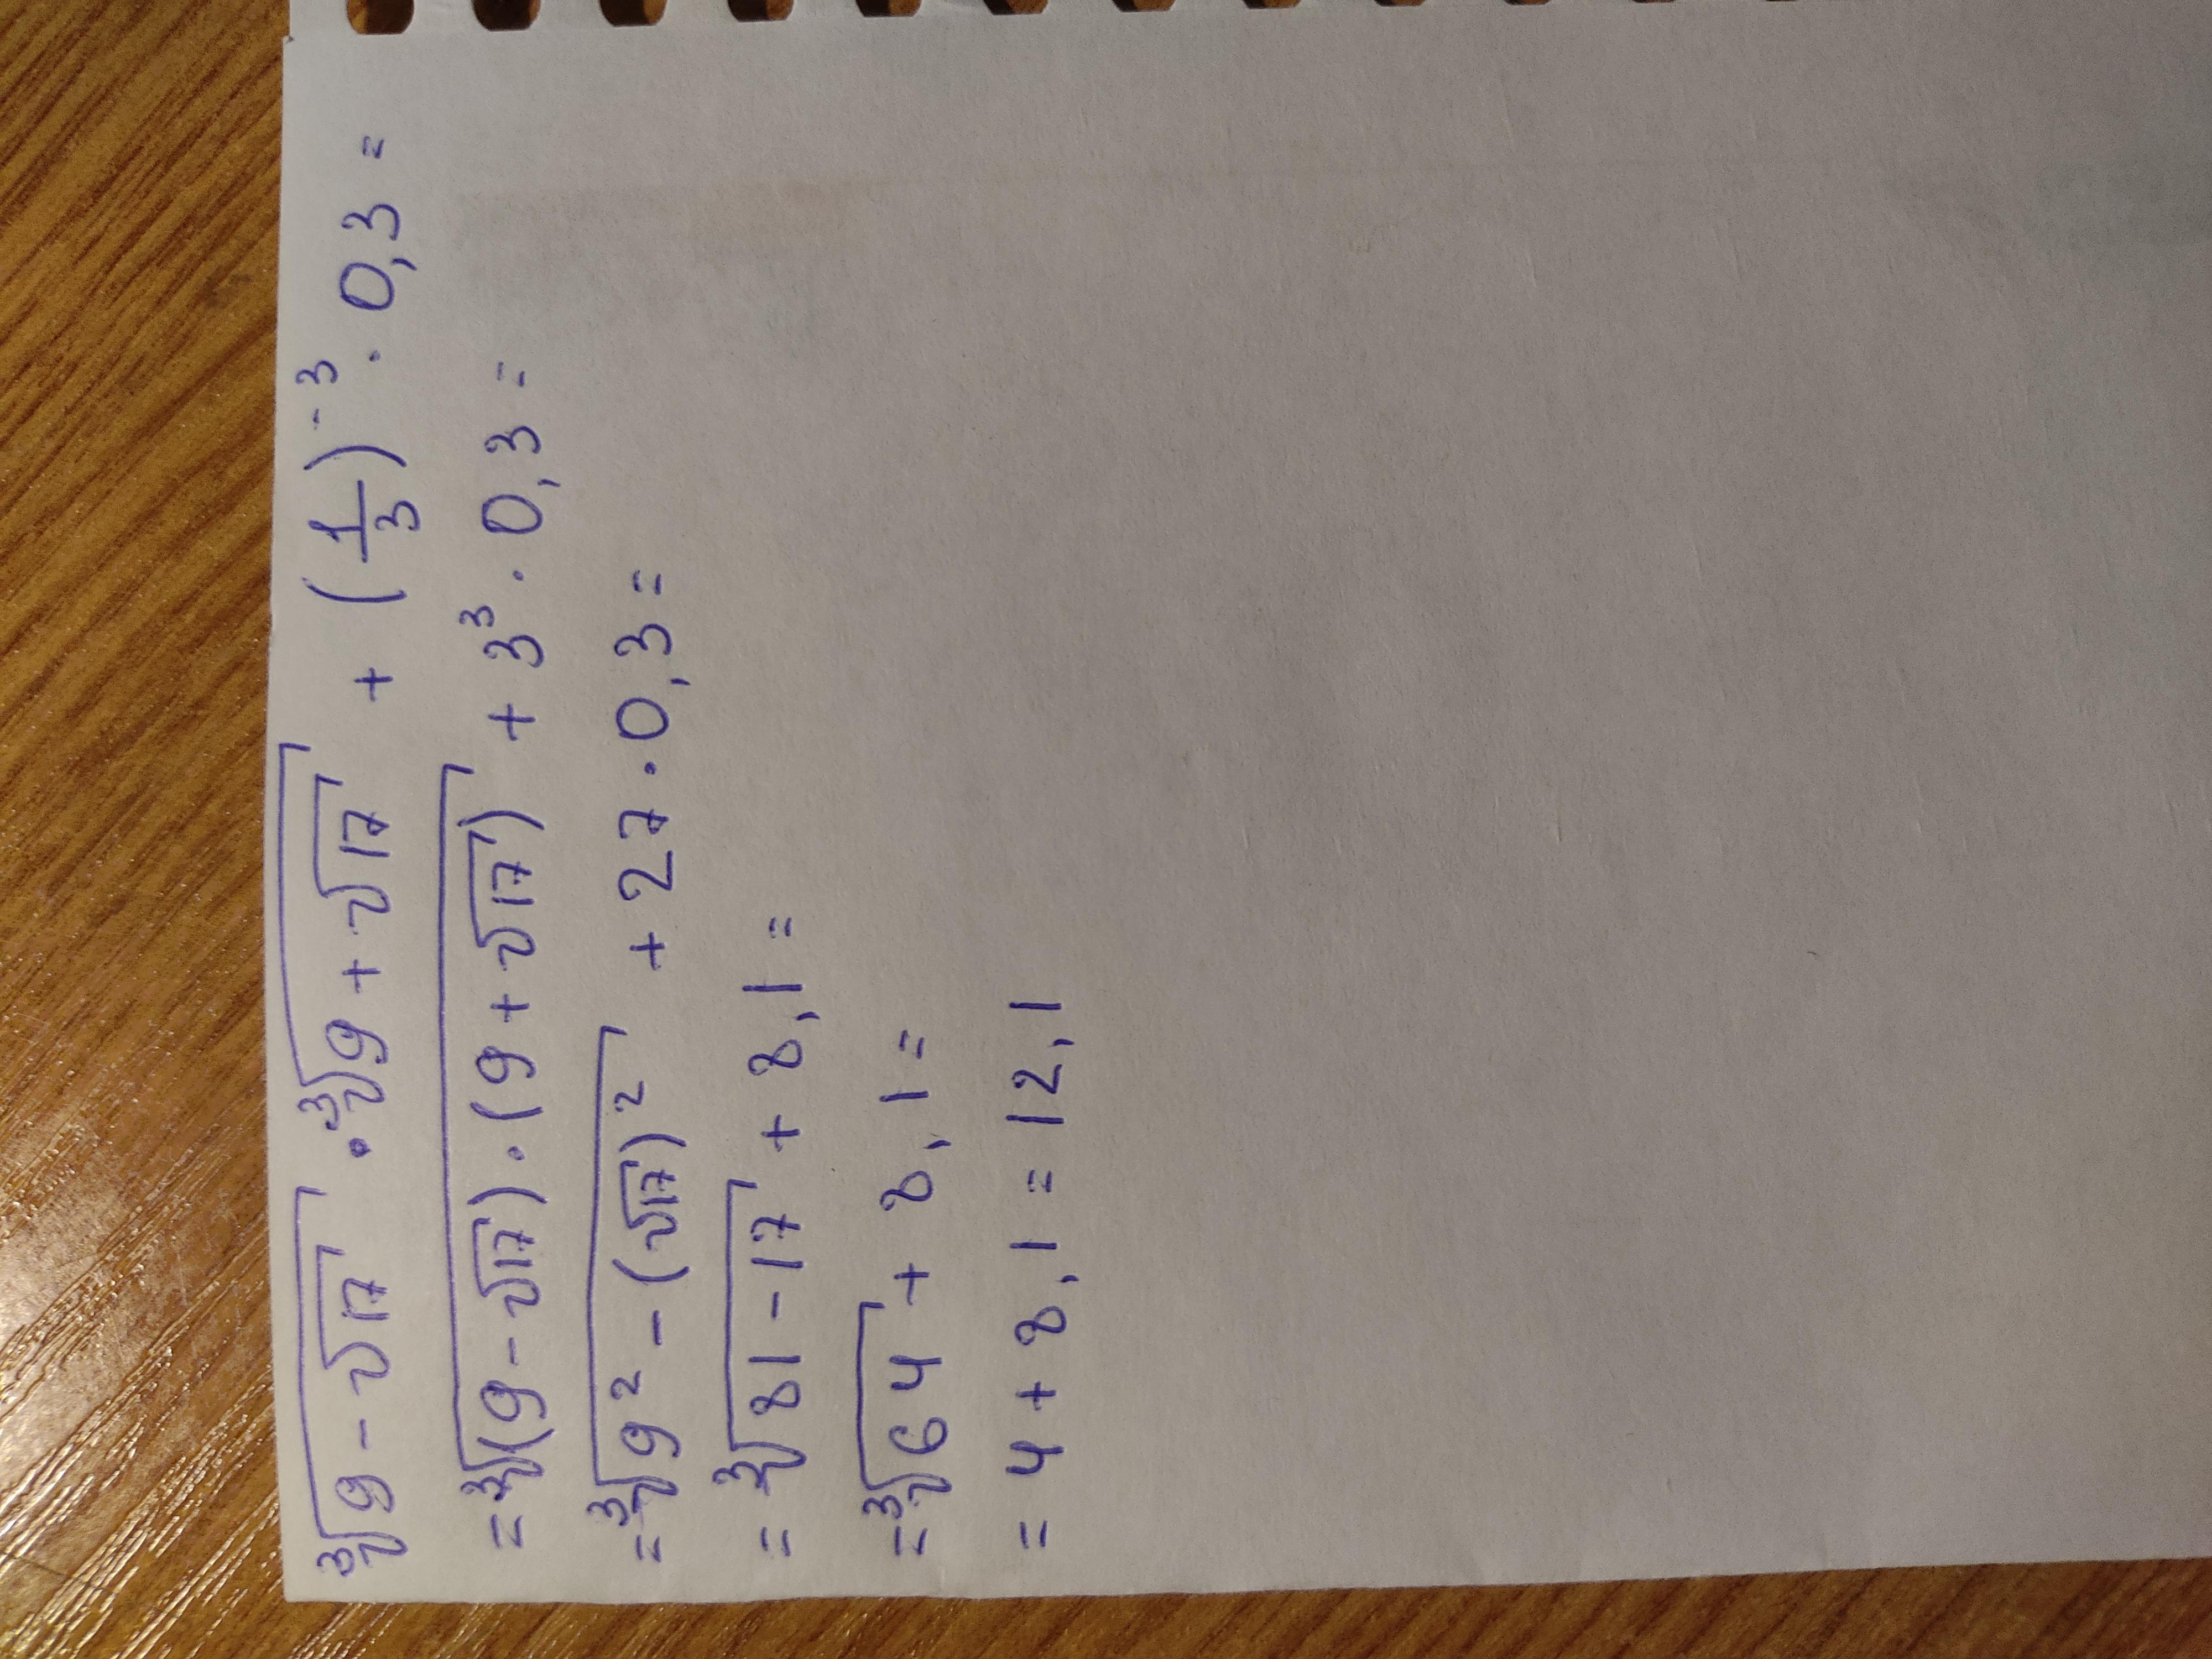 ∛(9 - √17) · ∛(9 + √17) + (1/3)⁻³ · 0,3 =
= ∛((9 - √17) · (9 + √17)) + 3³ · 0,3 =
= ∛(9² - (√17)²) + 27 · 0,3 =
= ∛(81 - 17) + 8,1 =
= ∛64 + 8,1 =
= 4 + 8,1 = 12,1